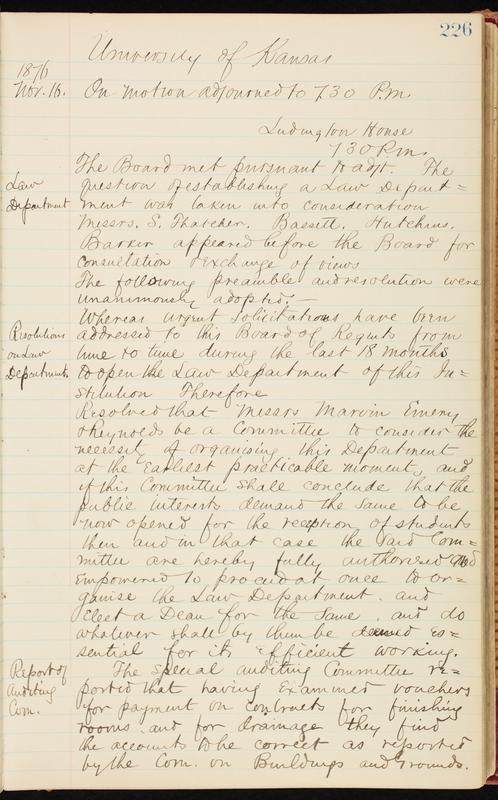 226
University of Kansas
1876
Nov. 16. On motion adjourned to 7.30 P.m.
Ludington House
7 30 P.m.
The Board met pursuant to adjt. The
Law question of establishing a Law Depart=
Department ment was taken into consideration
Messrs. S. Thatcher. Bassett. Hutchins.
Barker appeared before the Board for
consultation & exchange of views
The following preamble and resolution were
unanimously adopted;—
Whereas urgent solicitations have been
Resolutions addressed to this Board of Regents from
on Law time to time during the last 18 months
Department. to open the Law Department of this In=
stitution Therefore
Resolved that Messrs Marvin Emery
& Reynolds be a Committee to consider the
necessity of organising this Department
at the earliest practicable moment, and
if this Committee shall conclude that the
public interests demand the same to be
now opened for the reception of students
then and in that case the said Com=
mittee are hereby fully authorized and
empowered to proceed at once to or=
ganise the Law Department. and
elect a Dean for the same. and do
whatever shall by them be deemed es=
sential for its efficient working.
Report of The Special auditing Committee re=
Auditing ported that having examined vouchers
Com. for payment on contracts for finishing
rooms and for drainage they find
the accounts to be correct as reported
by the Com. on Buildings and Grounds.